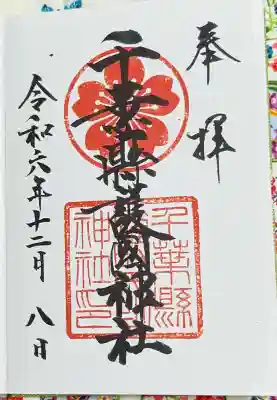 奉拝
千葉縣護國神社
千葉縣護國神社印
令和六年十二月八日